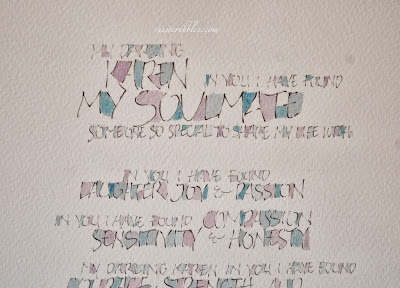 MY DARLING
KAREN IN YOU I HAVE FOUND
MY SOULMATE
SOMEONE SO SPECIAL TO SHARE MY LIFE WITH.
IN YOU I HAVE FOUND
LAUGHTER, JOY & PASSION
IN YOU I HAVE FOUND COMPASSION
SENSITIVITY & HONESTY
MY DARLING KAREN IN YOU I HAVE FOUND
COURAGE, STRENGTH AND